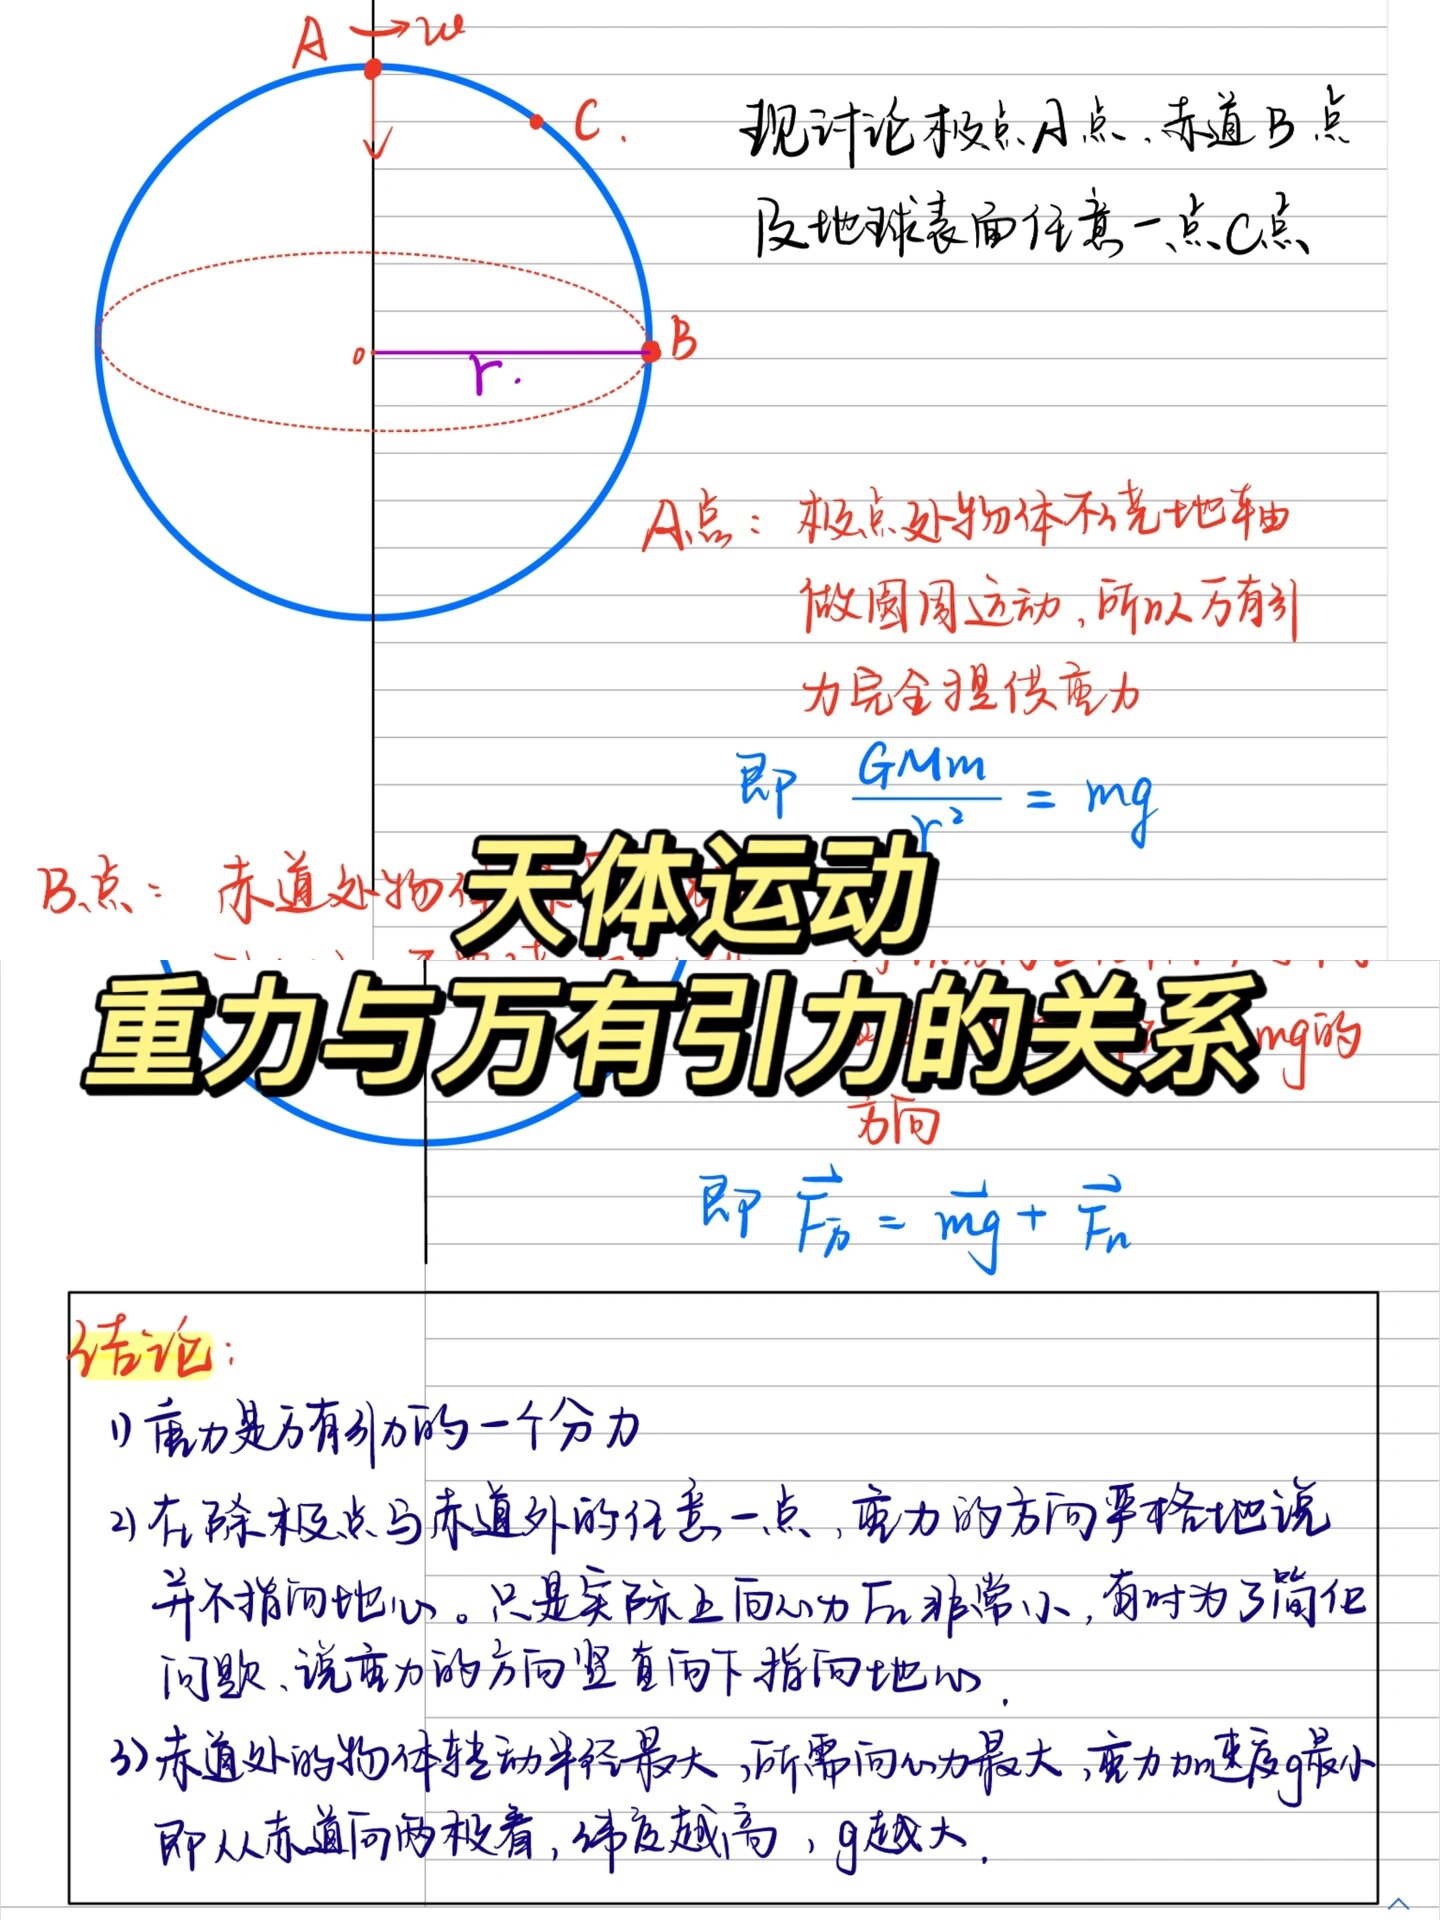 A ω
C.
现讨论极点A点、赤道B点
及地球表面任意一点C点
O r. B
A点：极点处物体不绕地轴
做圆周运动，所以万有引
力完全提供重力
即 GMm/r² = mg
B点：赤道处物
天体运动
重力与万有引力的关系
mg的
方向
即 F⃗万 = m⃗g + F⃗n
结论：
1) 重力是万有引力的一个分力
2) 在除极点与赤道外的任意一点，重力的方向严格地说
并不指向地心。只是实际上向心力Fn非常小，有时为了简化
问题、说重力的方向竖直向下指向地心.
3) 赤道处的物体转动半径最大，所需向心力最大，重力加速度g最小
即从赤道向两极看，纬度越高，g越大.